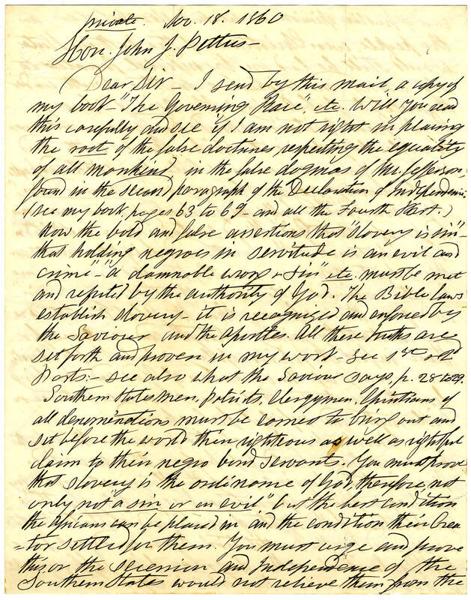 private. Nov. 18. 1860
Hon. John J. Pettus -
Dear Sir - I send by this mail a copy of
my book "The Governing Race, etc. Will you read
this carefully and see if I am not right in placing
the root of the false doctrines respecting the equality
of all mankind, in the false dogmas of Mr Jefferson,
found in the second paragraph of the Declaration of Independence
(see my book, pages 63 to 69 - and all the Fourth Part.)
Now the bold and false assertions that slavery is "sin" -
that holding negroes in servitude is an evil and
crime" - "a damnable wrong & sin etc must be met
and refuted by the authority of God. The Bible laws
establish slavery - it is recognized and enforced by
the Saviour and the Apostles. All these truths are
set forth and proven in my work - See 1st & 2d
Parts; - see also what the Saviour says, p. 28
Southern States men, Patriots, Clergymen, Christians of
all denominations must be to bring out and
set before the world their righteous as well as rightful
claim to their negro bond servants. You must prove
that slavery is the ordinance of God, therefore not
only not a sin or an evil" but the best condition
the Africans can be placed in and the condition their Crea-
tor settled for them. You must urge and prove
this or the secession and Independence of the
Southern States would not relieve them from the